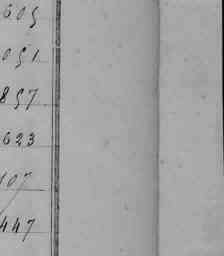 605
051
857
623
107
447